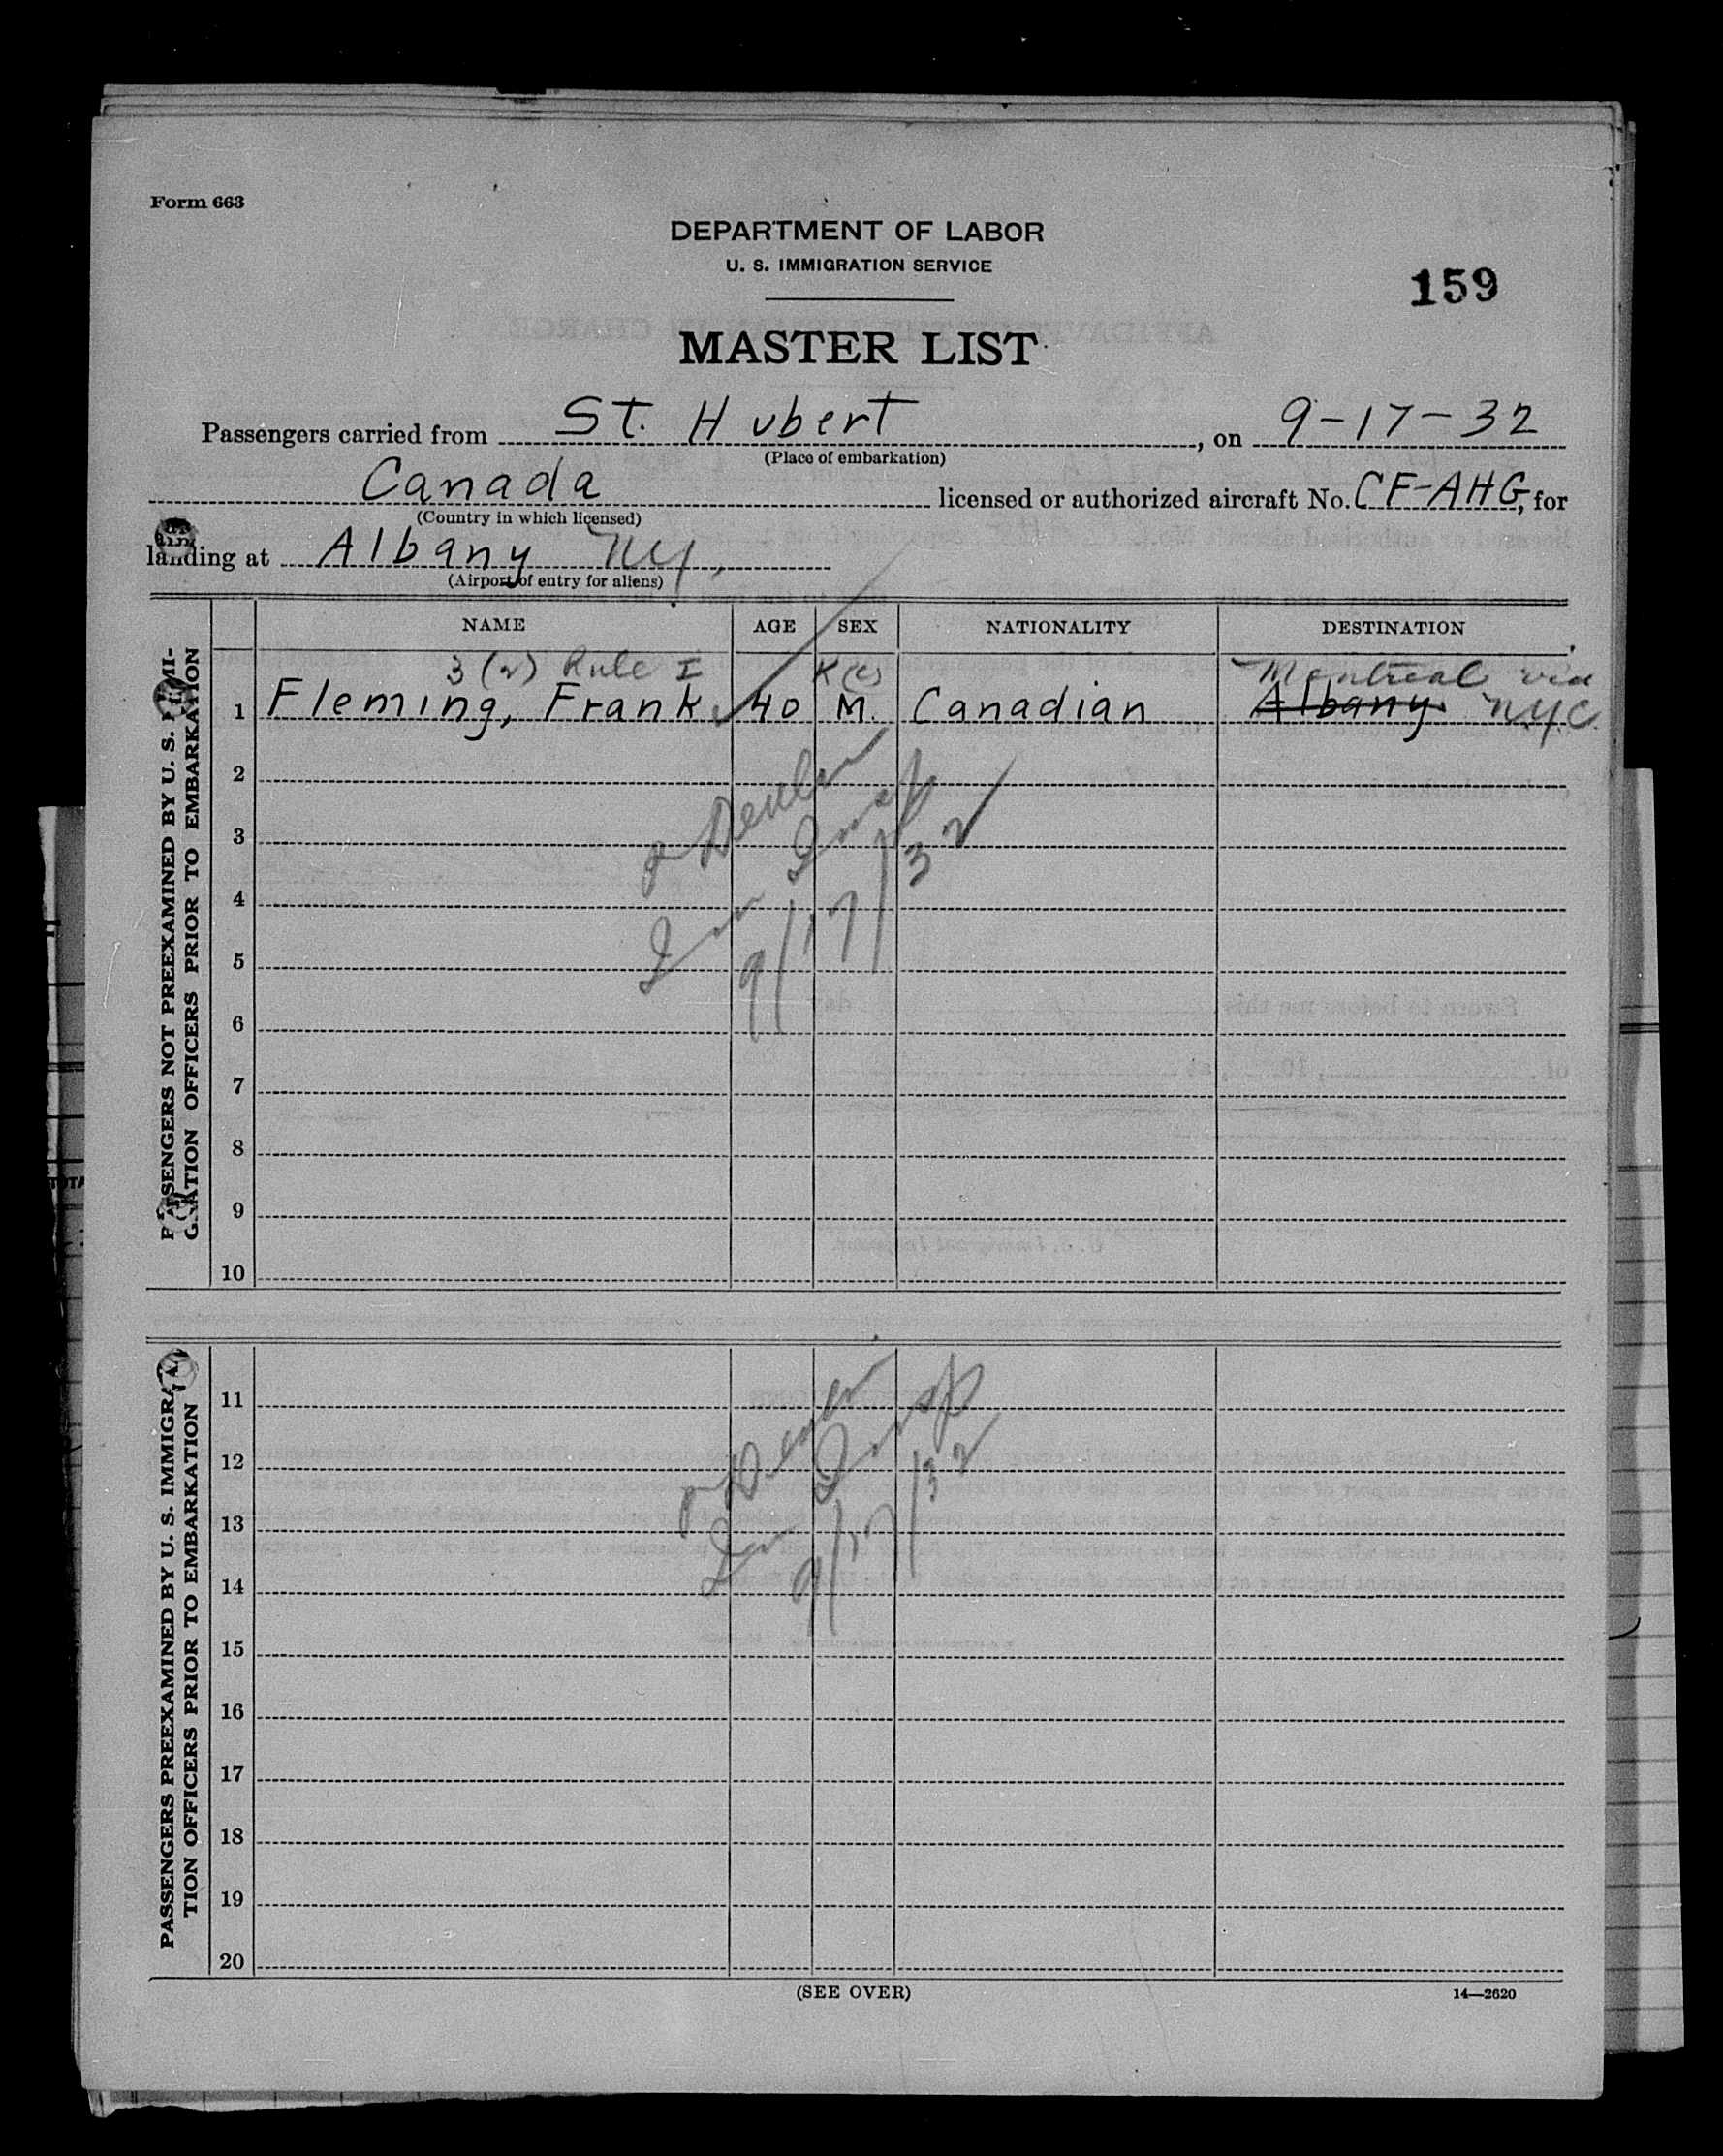 Form 663
DEPARTMENT OF LABOR
U. S. IMMIGRATION SERVICE
159
MASTER LIST
Passengers carried from St. Hubert, on 9-17-32
(Place of embarkation)
Canada licensed or authorized aircraft No. CF-AHG, for
(Country in which licensed)
landing at Albany NY,
(Airport of entry for aliens)
NAME AGE SEX NATIONALITY DESTINATION
3 (2) Rule I K(c) Montreal via
1 Fleming, Frank 40 M. Canadian Albany NYC.
2
3
4
5
6
7
8
9
10
Imm Insp
9/17/32
PASSENGERS NOT PREEXAMINED BY U. S. IMMI-
GRATION OFFICERS PRIOR TO EMBARKATION
11
12
13
14
15
16
17
18
19
20
Imm Insp
9/17/32
PASSENGERS PREEXAMINED BY U. S. IMMIGRA-
TION OFFICERS PRIOR TO EMBARKATION
(SEE OVER)
14—2620